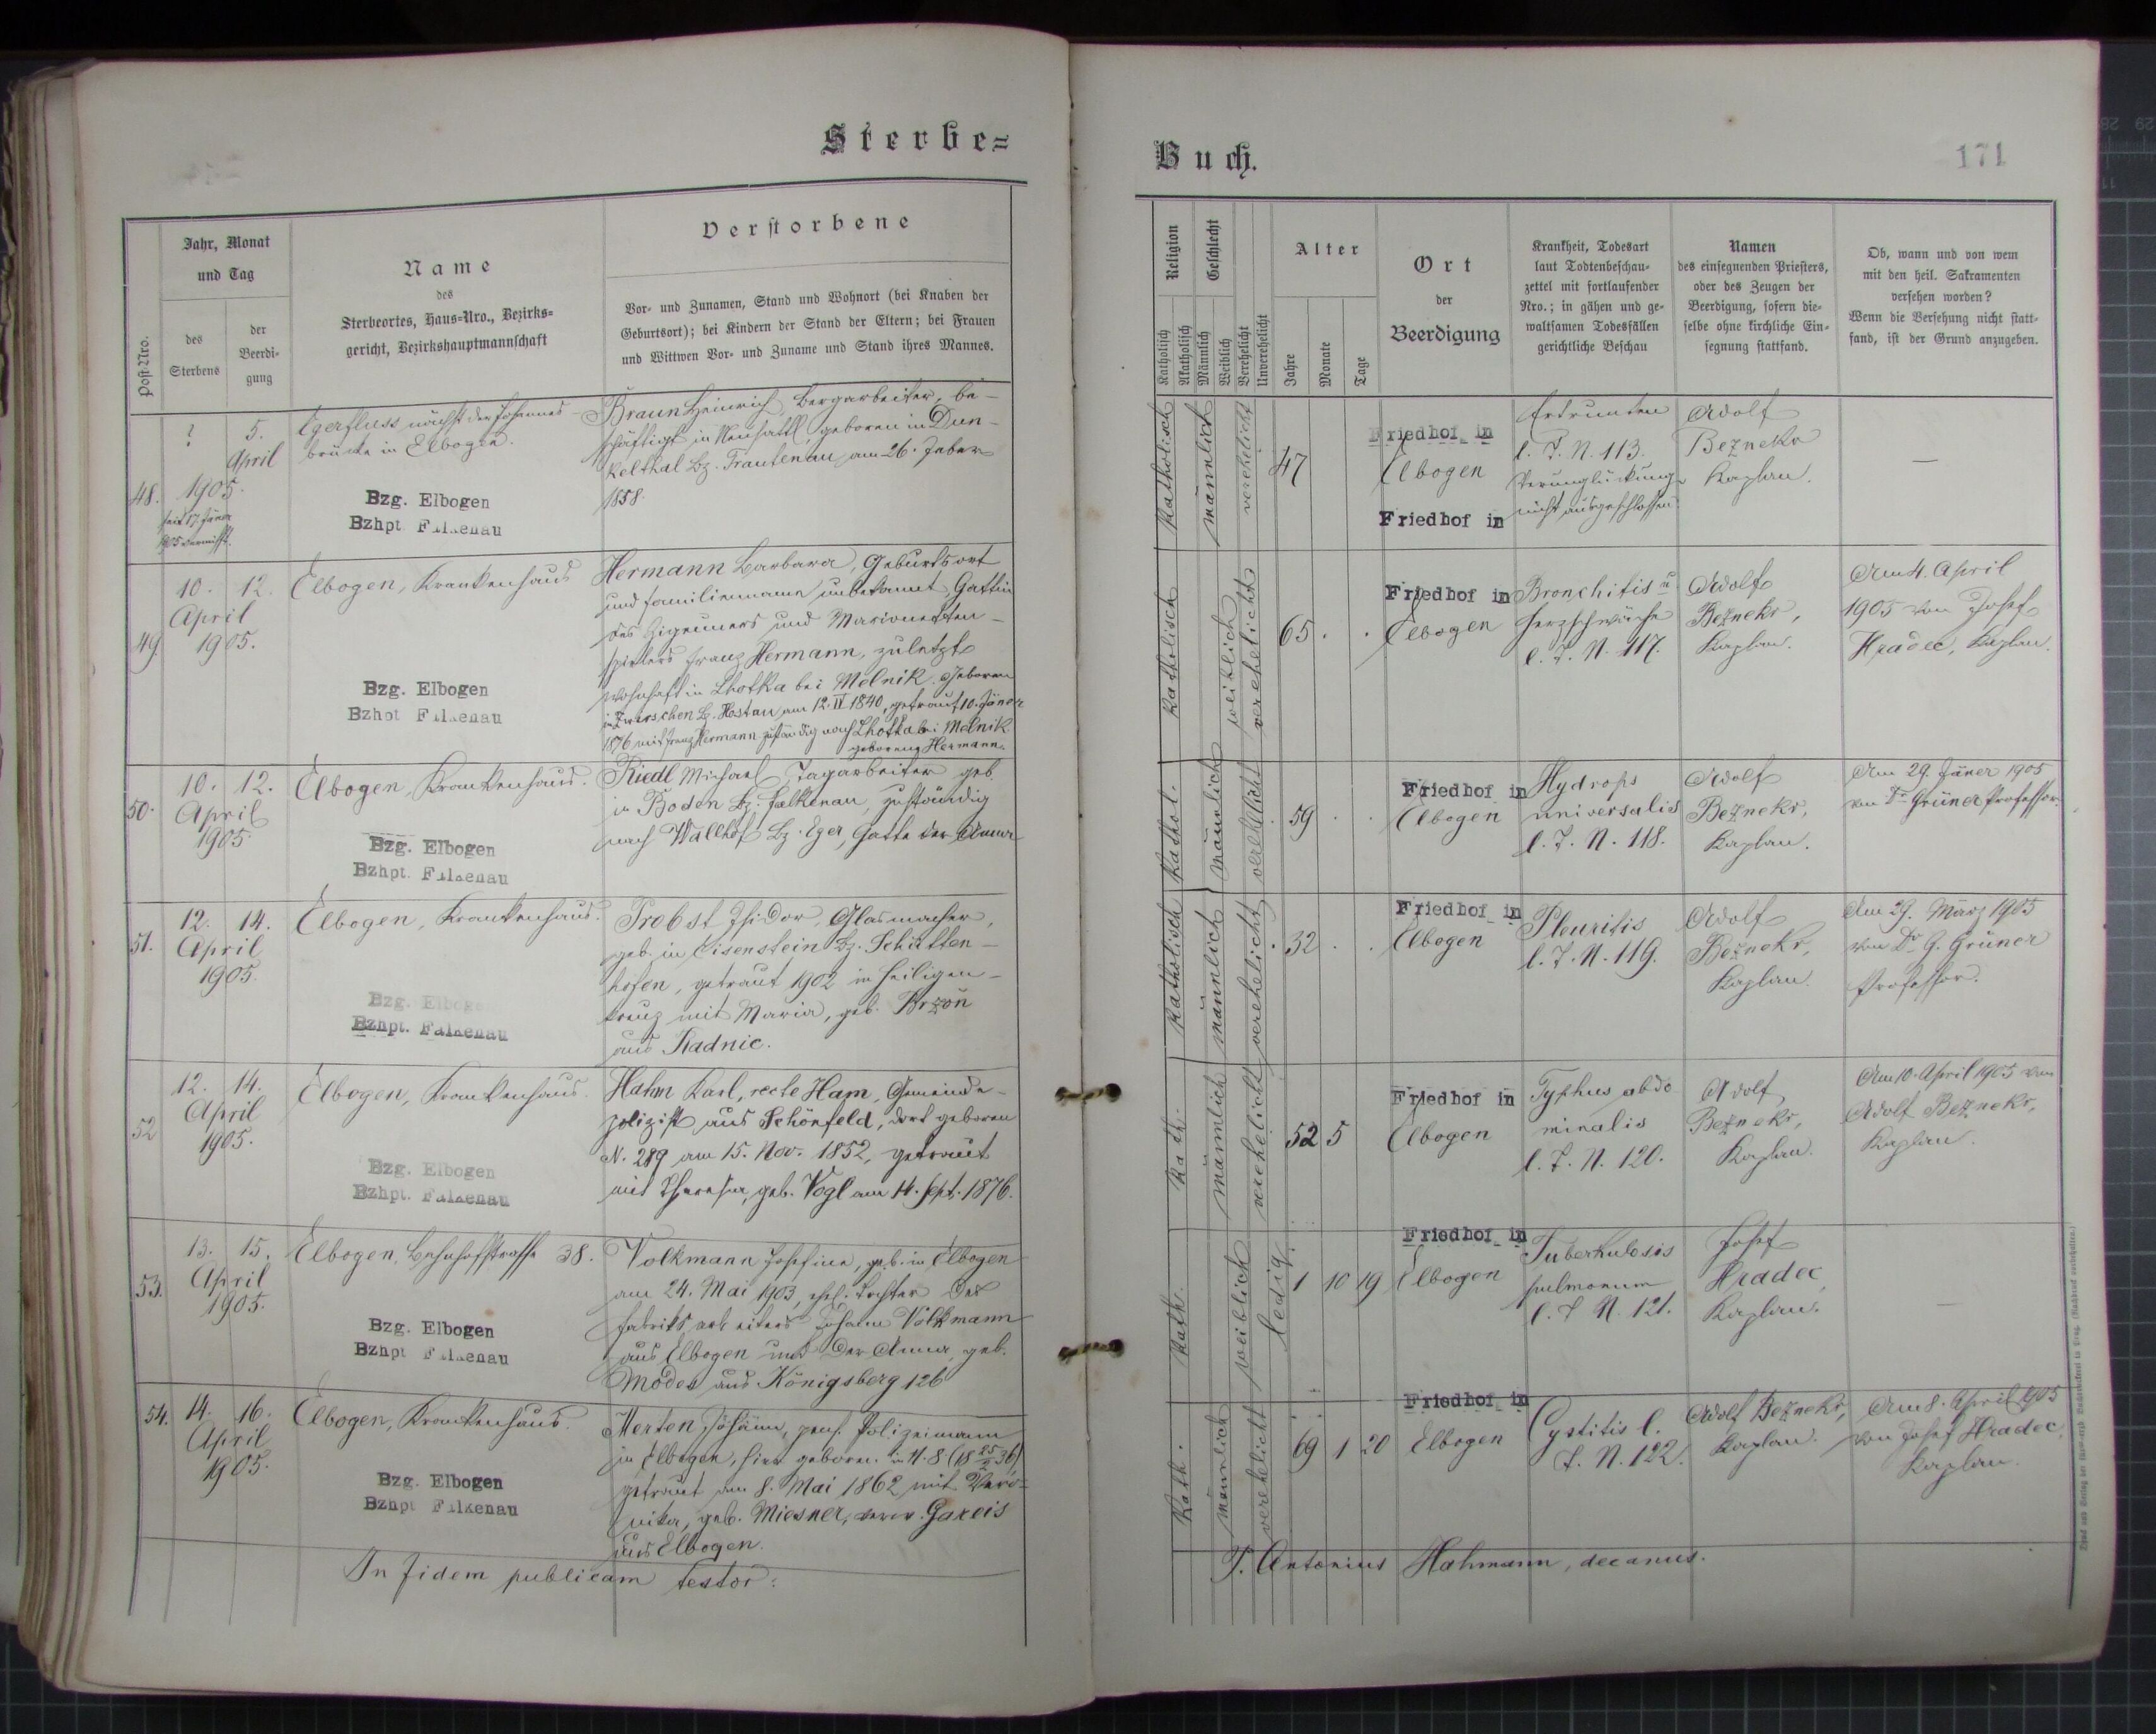 Sterbe=
Jahr, Monat
und Tag
Post-Nro.
des
Sterbens
der
Beerdi-
gung
Name
des
Sterbeortes, Haus-Nro., Bezirks-
gericht, Bezirkshauptmannschaft
Verstorbene
Vor- und Zunamen, Stand und Wohnort (bei Knaben der
Geburtsort); bei Kindern der Stand der Eltern; bei Frauen
und Wittwen Vor- und Zuname und Stand ihres Mannes.
48.
? 5.
April
1905.
seit 17. Jäner
1905 vermißt.
Egerfluss nächst der Johannes-
brücke in Elbogen.
Bzg. Elbogen
Bzhpt. Falkenau
Braun Heinrich, Bergarbeiter, be-
schäftigt in Neusattl, geboren in Dun-
kelthal Bz. Trautenau am 26. Feber
1858.
49.
10. 12.
April
1905.
Elbogen, Krankenhaus
Bzg. Elbogen
Bzhpt Falkenau
Hermann Barbara, Geburtsort
und Familienname unbekannt, Gattin
des Zigeuners und Marionetten-
spielers Franz Hermann, zuletzt
wohnhaft in Lhotka bei Melnik. Geboren
in Bz. Hostau am 12. IV 1840, getraut 10. Jäner
1876 mit Franz Hermann zuständig nach Lhotka bei Melnik
geborene Hermann.
50.
10. 12.
April
1905
Elbogen, Krankenhaus.
Bzg. Elbogen
Bzhpt. Falkenau
Riedl Michael, Tagarbeiter geb.
in Boden Bz. Falkenau, zuständig
nach Wallhof Bz. Eger, Gatte der Anna
51.
12. 14.
April
1905.
Elbogen, Krankenhaus.
Bzg. Elbogen
Bzhpt. Falkenau
Probst Isidor, Glasmacher,
geb. in Eisenstein Bz. Schütten-
hofen, getraut 1902 in Heiligen-
kreuz mit Maria, geb. Brzoň
aus Radnic.
52
12. 14.
April
1905.
Elbogen, Krankenhaus.
Bzg. Elbogen
Bzhpt. Falkenau
Hahn Karl, recte Ham, Gemeinde-
polizist aus Schönfeld, dort geboren
N. 289 am 15. Nov. 1852, getraut
mit Theresia, geb. Vogl am 14. Sept. 1876.
53.
13. 15.
April
1905.
Elbogen, Bahnhofstrasse 38.
Bzg. Elbogen
Bzhpt Falkenau
Volkmann Josefine, geb. in Elbogen
am 24. Mai 1903, ehel. Tochter des
Fabriksarbeiters Johann Volkmann
aus Elbogen und der Anna, geb.
Modes aus Königsberg 126
54.
14. 16.
April
1905.
Elbogen, Krankenhaus.
Bzg. Elbogen
Bzhpt Falkenau
Merten Johann, pens. Polizeimann
in Elbogen, hier geboren in N. 8 (18 25/2 36)
getraut am 8. Mai 1862 mit Vero-
nika, geb. Miesner, verw. Gareis
aus Elbogen.
In fidem publicam testor:
Buch.
171
Religion
Katholisch
Akatholisch
Geschlecht
Männlich
Weiblich
Verehelicht
Unverehelicht
Alter
Jahre
Monate
Tage
Ort
der
Beerdigung
Krankheit, Todesart
laut Todtenbeschau-
zettel mit fortlaufender
Nro.; in gähen und ge-
waltsamen Todesfällen
gerichtliche Beschau
Namen
des einsegnenden Priesters,
oder des Zeugen der
Beerdigung, sofern die-
selbe ohne kirchliche Ein-
segnung stattfand.
Ob, wann und von wem
mit den heil. Sakramenten
versehen worden?
Wenn die Versehung nicht statt-
fand, ist der Grund anzugeben.
Katholisch
männlich
verehelicht
47
Friedhof in
Elbogen
Friedhof in
Ertrunken
l. T. N. 113.
Verunglückung
nicht ausgeschlossen.
Adolf
Bezneks
Kaplan.
—
Katholisch
weiblich
verehelicht
65 . .
Friedhof in
Elbogen
Bronchitis u
Herzschwäche
l. T. N. 117.
Adolf
Bezneks,
Kaplan.
Am 4. April
1905 von Josef
Hradec, Kaplan.
Kathol.
männlich
verehelicht
59 . .
Friedhof in
Elbogen
Hydrops
universalis
l. T. N. 118.
Adolf
Bezneks,
Kaplan.
Am 29. Jäner 1905
von Dr Grüner Professor.
Katholisch
männlich
verehelicht
32 . .
Friedhof in
Elbogen
Pleuritis
l. T. N. 119.
Adolf
Bezneks,
Kaplan.
Am 29. März 1905
von Dr G. Grüner
Professor.
Kath.
männlich
verehelicht
52 5
Friedhof in
Elbogen
Typhus abdo
minalis
l. T. N. 120.
Adolf
Bezneks,
Kaplan.
Am 10. April 1905 von
Adolf Bezneks,
Kaplan.
Kath.
weiblich
ledig.
1 10 19
Friedhof in
Elbogen
Tuberkulosis
pulmonum
l. T. N. 121.
Josef
Hradec,
Kaplan.
—
Kath.
männlich
verehelicht
69 1 20
Friedhof in
Elbogen
Cystitis l.
T. N. 122.
Adolf Bezneks,
Kaplan.
Am 8. April 1905
von Josef Hradec,
Kaplan.
P. Antonius Hahmann, decanus.